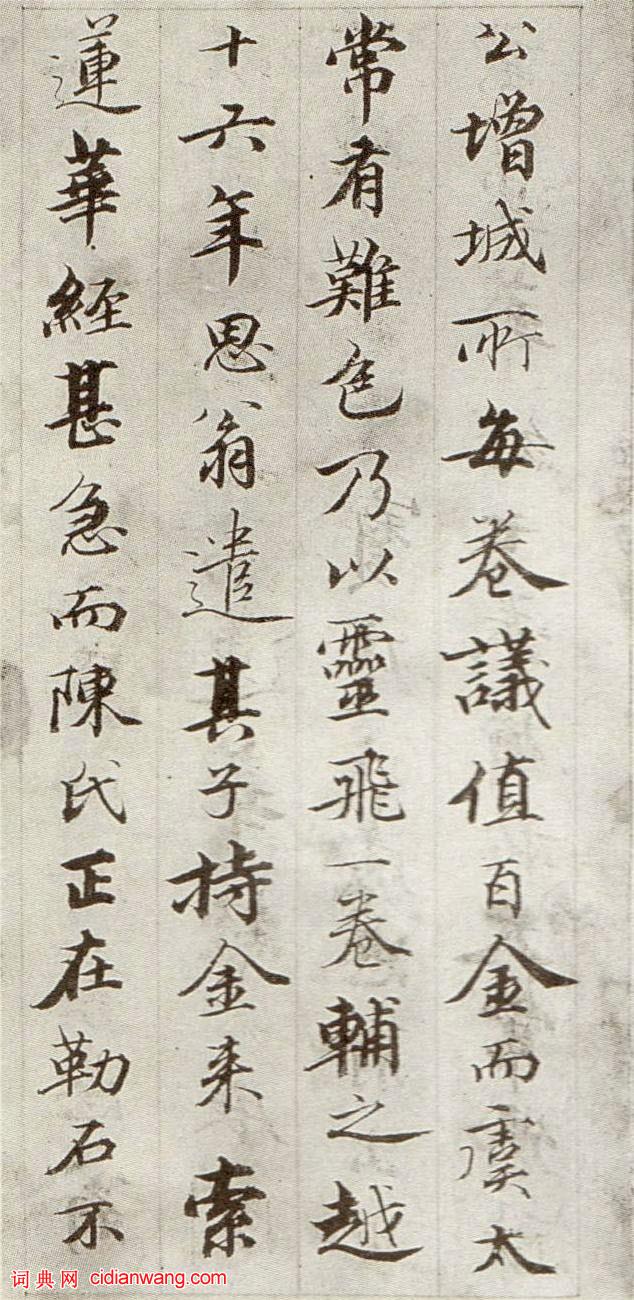 公增城所每卷議值百金而虞太
常有難色乃以靈飛一卷輔之越
十六年思翁遣其子持金來索
蓮華經甚急而陳氏正在勒石不
词典网 cidianwang.com